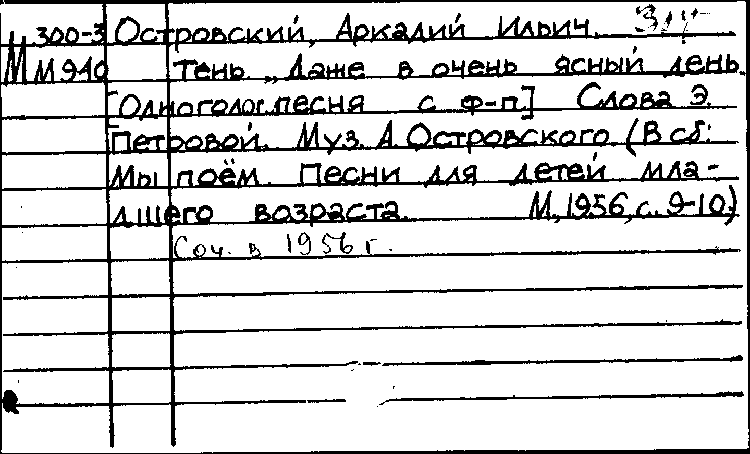 М 300-3 Островский, Аркадий Ильич.
М 940 Тень „Даже в очень ясный день
[Одноголос. песня с ф-п.] Слова Э.
Петровой. Муз. А. Островского (В сб:
Мы поём. Песни для детей мла-
дшего возраста. М, 1956, с. 9-10.)
Соч. в 1956 г.